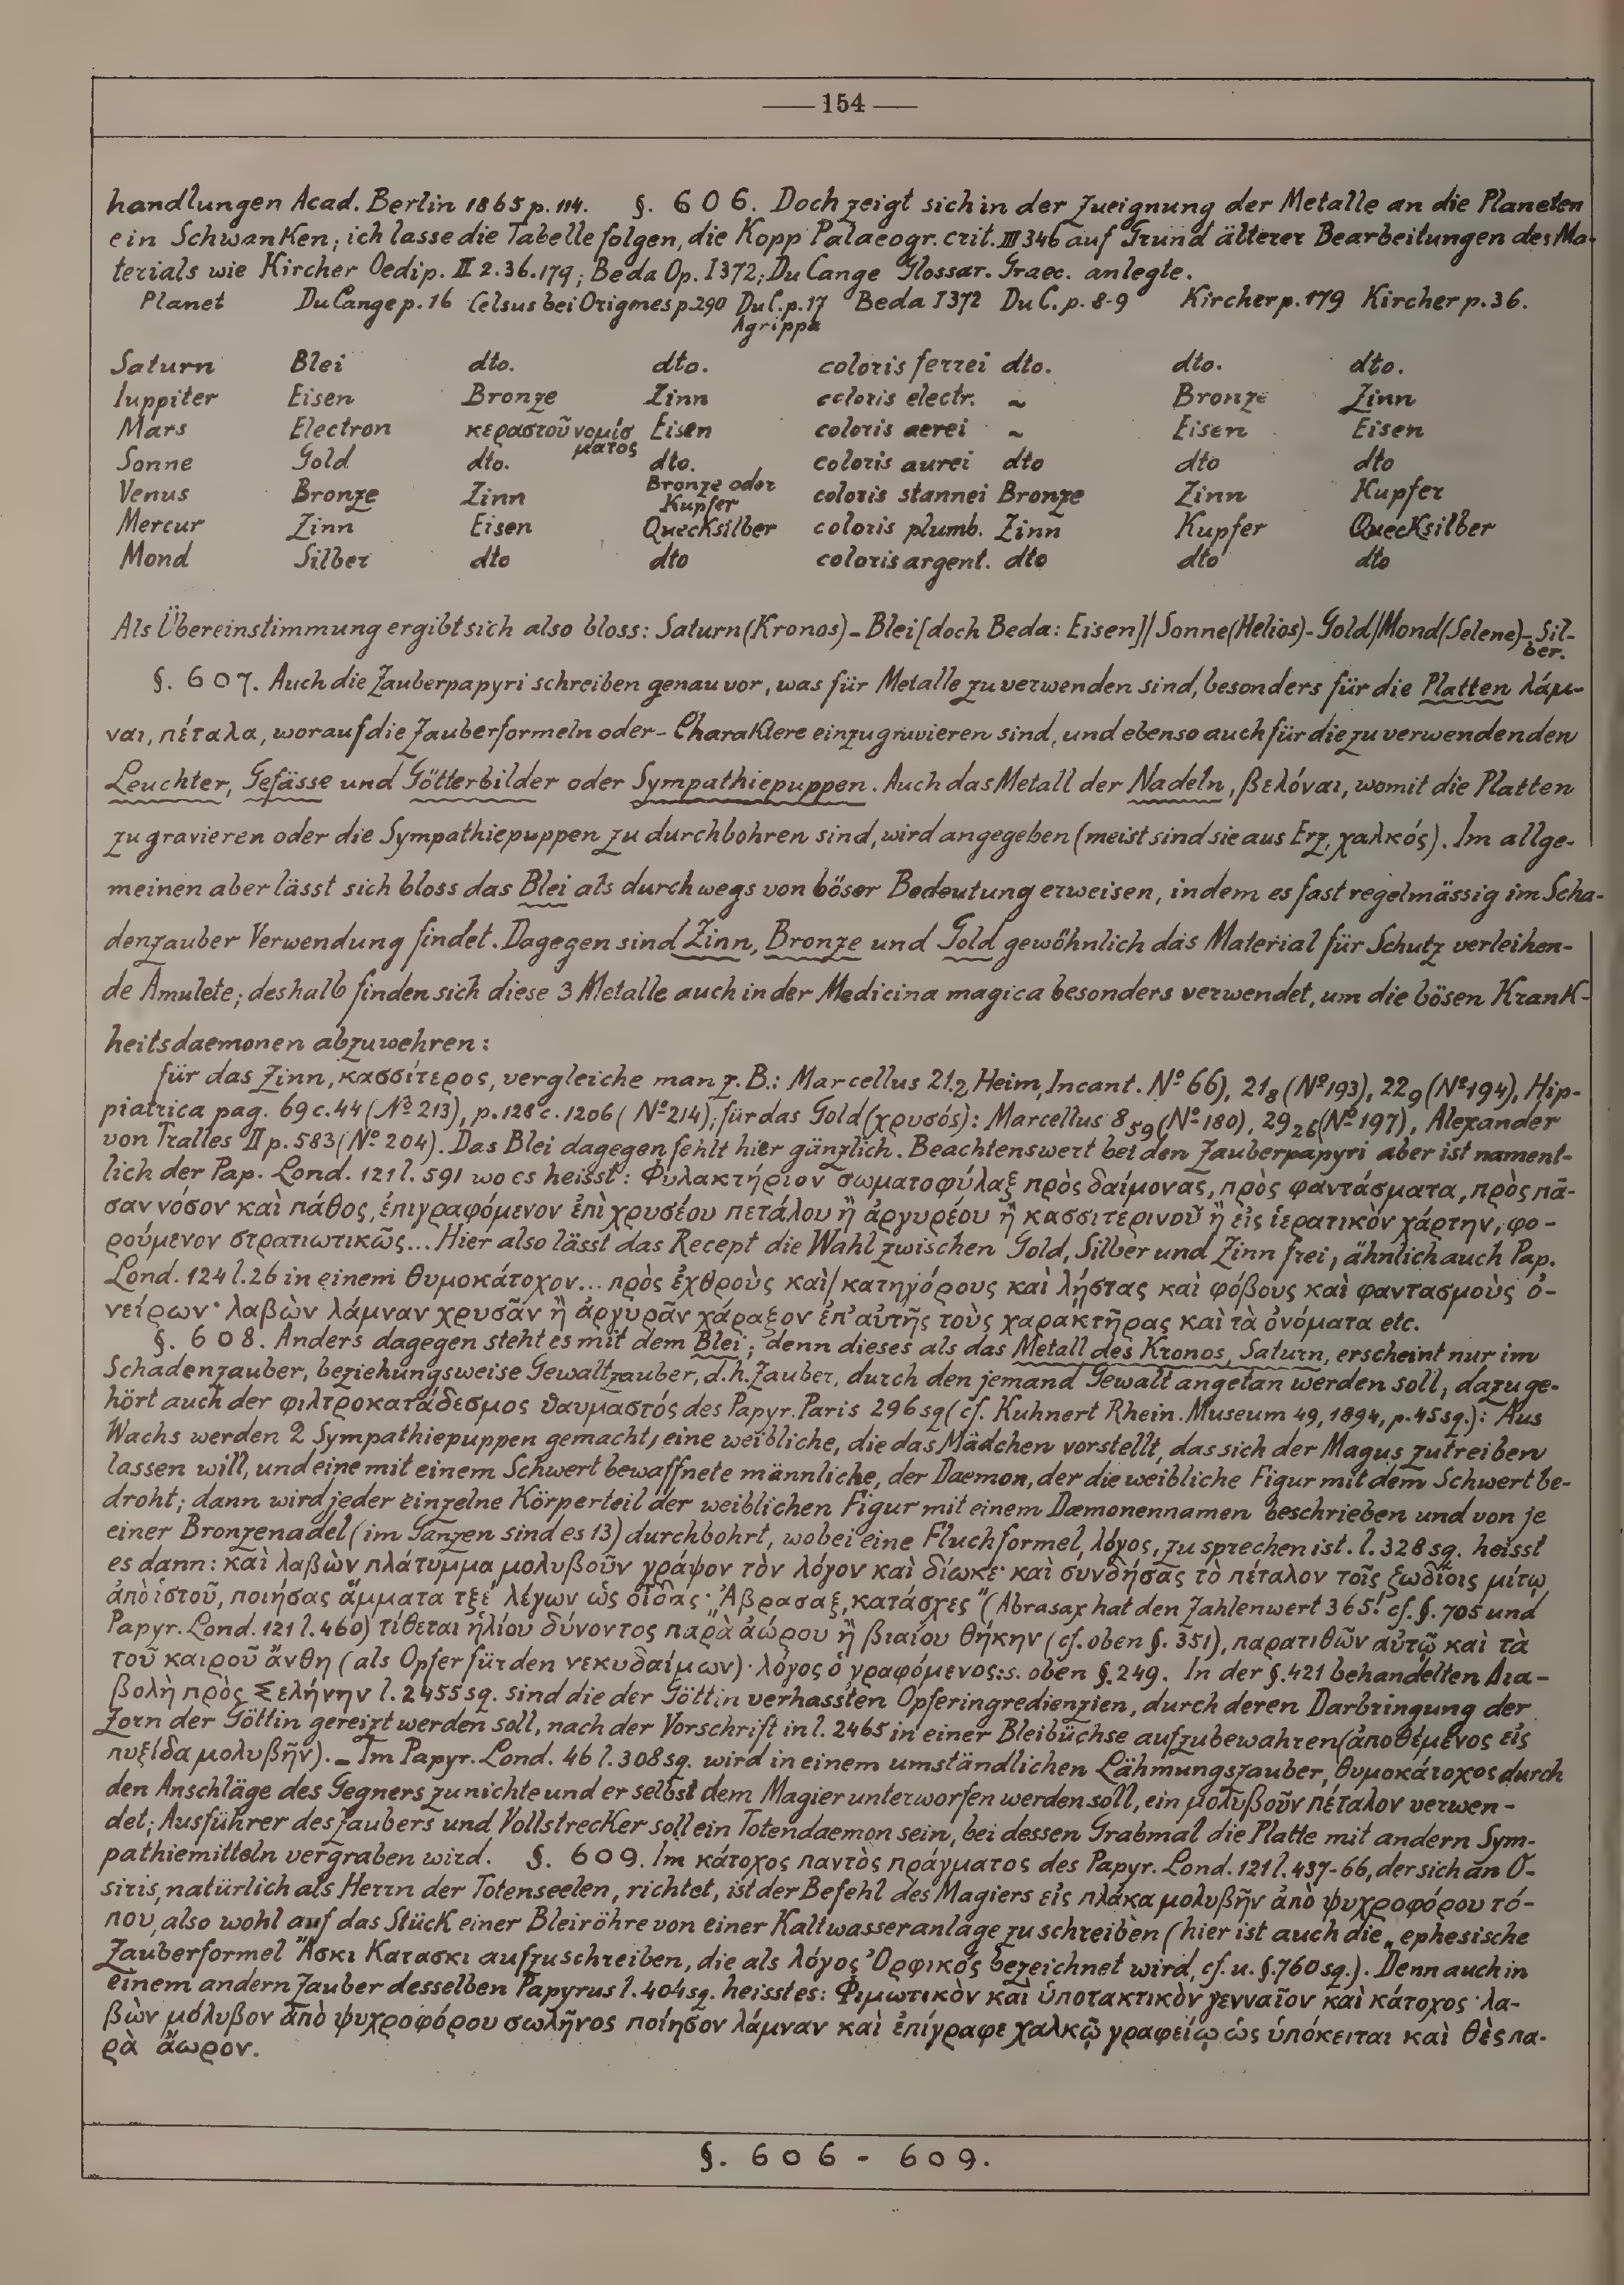 154
handlungen Acad. Berlin 1865 p. 114. §. 606. Doch zeigt sich in der Zueignung der Metalle an die Planeten
ein Schwanken; ich lasse die Tabelle folgen, die Kopp Palaeogr. crit. III 346 auf Grund älterer Bearbeitungen des Ma-
terials wie Kircher Oedip. II 2. 36. 179; Beda Op. I 372; Du Cange Glossar. Graec. anlegte.
Planet Du Cange p. 16 Celsus bei Origines p. 290 Du C. p. 17 Agrippa Beda I 372 Du C. p. 8-9 Kircher p. 179 Kircher p. 36.
Saturn Blei dto. dto. coloris ferrei dto. dto. dto.
Iuppiter Eisen Bronze Zinn coloris electr. ~ Bronze Zinn
Mars Electron κεραστοῦ νομίσματος Eisen coloris aerei ~ Eisen Eisen
Sonne Gold dto. dto. coloris aurei dto dto dto
Venus Bronze Zinn Bronze oder Kupfer coloris stannei Bronze Zinn Kupfer
Mercur Zinn Eisen Quecksilber coloris plumb. Zinn Kupfer Quecksilber
Mond Silber dto dto coloris argent. dto dto dto
Als Übereinstimmung ergibt sich also bloss: Saturn (Kronos) - Blei [doch Beda: Eisen] | Sonne (Helios) - Gold | Mond (Selene) - Sil-
ber.
§. 607. Auch die Zauberpapyri schreiben genau vor, was für Metalle zu verwenden sind, besonders für die Platten λάμ-
ναι, πέταλα, worauf die Zauberformeln oder - Charaktere einzugravieren sind, und ebenso auch für die zu verwendenden
Leuchter, Gefässe und Götterbilder oder Sympathiepuppen. Auch das Metall der Nadeln, βελόναι, womit die Platten
zu gravieren oder die Sympathiepuppen zu durchbohren sind, wird angegeben (meist sind sie aus Erz, χαλκός). Im allge-
meinen aber lässt sich bloss das Blei als durchwegs von böser Bedeutung erweisen, indem es fast regelmässig im Scha-
denzauber Verwendung findet. Dagegen sind Zinn, Bronze und Gold gewöhnlich das Material für Schutz verleihen-
de Amulete; deshalb finden sich diese 3 Metalle auch in der Medicina magica besonders verwendet, um die bösen Krank-
heitsdaemonen abzuwehren:
für das Zinn, κασσίτερος, vergleiche man z. B.: Marcellus 21.2 Heim, Incant. Nº 66), 21 8 (Nº 193), 22 9 (Nº 194), Hip-
piatrica pag. 69 c. 44 (Nº 213), p. 128 c. 1206 (Nº 214); für das Gold (χρυσός): Marcellus 8 59 (Nº 180), 29 26 (Nº 197), Alexander
von Tralles II p. 583 (Nº 204). Das Blei dagegen fehlt hier gänzlich. Beachtenswert bei den Zauberpapyri aber ist nament-
lich der Pap. Lond. 121 l. 591 wo es heisst: Φυλακτήριον σωματοφύλαξ πρὸς δαίμονας, πρὸς φαντάσματα, πρὸς πᾶ-
σαν νόσον καὶ πάθος, ἐπιγραφόμενον ἐπὶ χρυσέου πετάλου ἢ ἀργυρέου ἢ κασσιτερίνοῦ ἢ εἰς ἱερατικὸν χάρτην, φο-
ρούμενον στρατιωτικῶς... Hier also lässt das Recept die Wahl zwischen Gold, Silber und Zinn frei, ähnlich auch Pap.
Lond. 124 l. 26 in einem θυμοκάτοχον... πρὸς ἐχθροὺς καὶ/κατηγόρους καὶ λῃστὰς καὶ φόβους καὶ φαντασμοὺς ὀ-
νείρων· λαβὼν λάμναν χρυσᾶν ἢ ἀργυρᾶν χάραξον ἐπ' αὐτῆς τοὺς χαρακτῆρας καὶ τὰ ὀνόματα etc.
§. 608. Anders dagegen steht es mit dem Blei; denn dieses als das Metall des Kronos, Saturn, erscheint nur im
Schadenzauber, beziehungsweise Gewaltzauber, d. h. Zauber, durch den jemand Gewalt angetan werden soll; dazu ge-
hört auch der φιλτροκατάδεσμος θαυμαστός des Papyr. Paris 296 sq (cf. Kuhnert Rhein. Museum 49, 1894, p. 45 sq.): Aus
Wachs werden 2 Sympathiepuppen gemacht, eine weibliche, die das Mädchen vorstellt, das sich der Magus zutreiben
lassen will, und eine mit einem Schwert bewaffnete männliche, der Daemon, der die weibliche Figur mit dem Schwert be-
droht; dann wird jeder einzelne Körperteil der weiblichen Figur mit einem Dæmonennamen beschrieben und von je
einer Bronzenadel (im Ganzen sind es 13) durchbohrt, wobei eine Fluchformel, λόγος, zu sprechen ist. l. 328 sq. heisst
es dann: καὶ λαβὼν πλάτυμμα μολυβοῦν γράψον τὸν λόγον καὶ δίωκε· καὶ συνδήσας τὸ πέταλον τοῖς ζωδίοις μίτῳ
ἀπὸ ἱστοῦ, ποιήσας ἅμματα τξε' λέγων ὡς οἶδας· "Ἀβρασαξ, κατάσχες" (Abrasax hat den Zahlenwert 365! cf. §. 705 und
Papyr. Lond. 121 l. 460) τίθεται ἡλίου δύνοντος παρὰ ἀώρου ἢ βιαίου θήκην (cf. oben §. 351), παρατιθῶν αὐτῷ καὶ τὰ
τοῦ καιροῦ ἄνθη (als Opfer für den νεκυδαίμων)· λόγος ὁ γραφόμενος: s. oben §. 249. In der §. 421 behandelten Δια-
βολὴ πρὸς Σελήνην l. 2455 sq. sind die der Göttin verhassten Opferingredienzien, durch deren Darbringung der
Zorn der Göttin gereizt werden soll, nach der Vorschrift in l. 2465 in einer Bleibüchse aufzubewahren (ἀποθέμενος εἰς
πυξίδα μολυβῆν). - Im Papyr. Lond. 46 l. 308 sq. wird in einem umständlichen Lähmungszauber, θυμοκάτοχος durch
den Anschläge des Gegners zunichte und er selbst dem Magier unterworfen werden soll, ein μολυβοῦν πέταλον verwen-
det; Ausführer des Zaubers und Vollstrecker soll ein Totendaemon sein, bei dessen Grabmal die Platte mit andern Sym-
pathiemitteln vergraben wird. §. 609. Im κάτοχος παντὸς πράγματος des Papyr. Lond. 121 l. 437-66, der sich an O-
siris, natürlich als Herrn der Totenseelen, richtet, ist der Befehl des Magiers εἰς πλάκα μολυβῆν ἀπὸ ψυχροφόρου τό-
που, also wohl auf das Stück einer Bleiröhre von einer Kaltwasseranlage zu schreiben (hier ist auch die „ephesische
Zauberformel "Ἄσκι Κατασκι aufzuschreiben, die als λόγος Ὀρφικός bezeichnet wird, cf. u. §. 760 sq.). Denn auch in
einem andern Zauber desselben Papyrus l. 404 sq. heisst es: Φιμωτικὸν καὶ ὑποτακτικὸν γενναῖον καὶ κάτοχος· λα-
βὼν μόλυβον ἀπὸ ψυχροφόρου σωλῆνος ποίησον λάμναν καὶ ἐπίγραφε χαλκῷ γραφείῳ ὡς ὑπόκειται καὶ θὲς πα-
ρὰ ἄωρον.
§. 606 - 609.